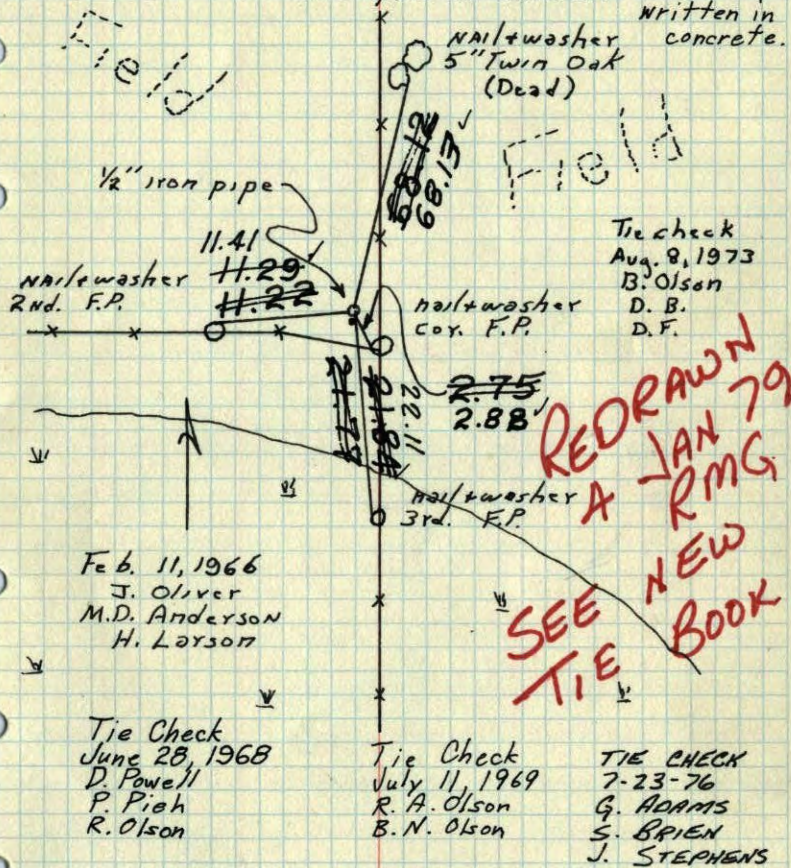 written in
concrete.
Field
Nail+washer
5" Twin Oak
(Dead)
Field
68.12
68.13
1/2" iron pipe
11.41
11.29
11.22
Nail+washer
2nd. F.P.
nail+washer
cor. F.P.
Tie check
Aug. 8, 1973
B. Olson
D. B.
D. F.
2.75
2.88
21.84
22.11
nail+washer
3rd. F.P.
REDRAWN
A JAN 79
RMG
SEE NEW
TIE BOOK
Feb. 11, 1966
J. Oliver
M.D. Anderson
H. Larson
Tie Check
June 28, 1968
D. Powell
P. Pieh
R. Olson
Tie Check
July 11, 1969
R. A. Olson
B. N. Olson
TIE CHECK
7-23-76
G. ADAMS
S. BRIEN
J. STEPHENS